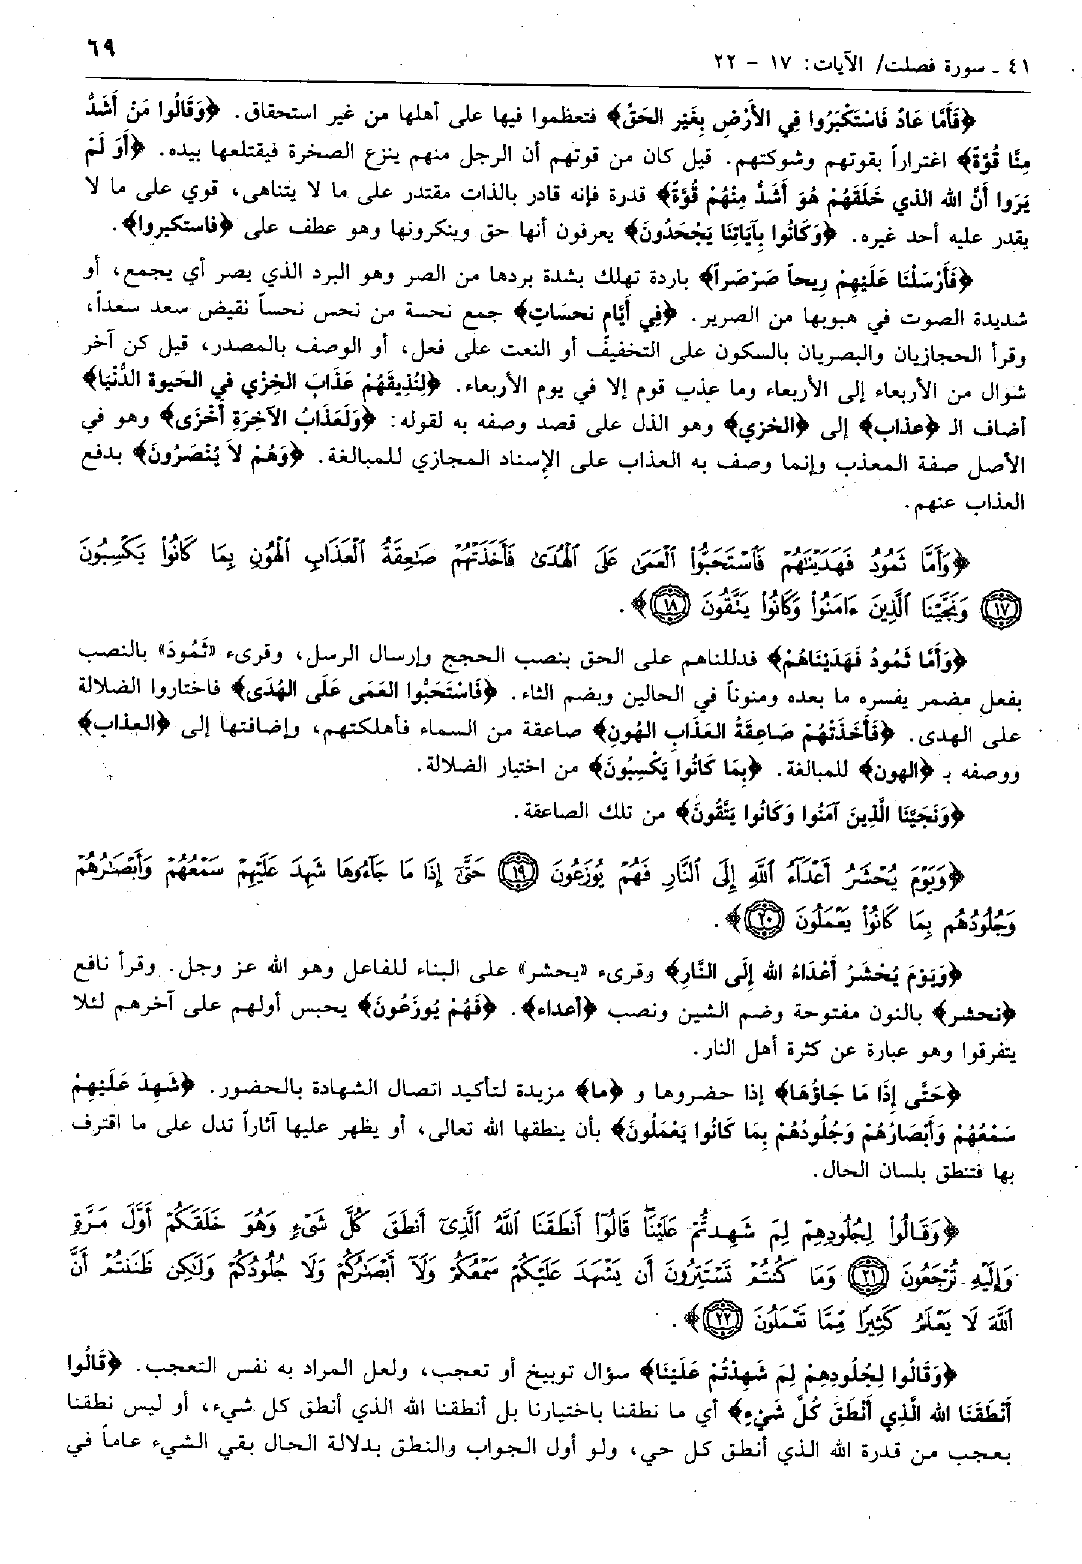 ٤١ ـ سورة فصلت/ الآيات: ١٧ - ٢٢
٦٩
﴿فَأَمَّا عَادٌ فَاسْتَكْبَرُوا فِي الأَرْضِ بِغَيْرِ الحَقِّ﴾ فتعظموا فيها على أهلها من غير استحقاق. ﴿وَقَالُوا مَنْ أَشَدُّ
مِنَّا قُوَّةً﴾ اغتراراً بقوتهم وشوكتهم. قيل كان من قوتهم أن الرجل منهم ينزع الصخرة فيقتلعها بيده. ﴿أَوَ لَمْ
يَرَوا أَنَّ الله الذي خَلَقَهُمْ هُوَ أَشَدُّ مِنْهُمْ قُوَّةً﴾ قدرة فإنه قادر بالذات مقتدر على ما لا يتناهى، قوي على ما لا
يقدر عليه أحد غيره. ﴿وَكَانُوا بِآيَاتِنَا يَجْحَدُونَ﴾ يعرفون أنها حق وينكرونها وهو عطف على ﴿فاستكبروا﴾.
﴿فَأَرْسَلْنَا عَلَيْهِمْ رِيحاً صَرْصَراً﴾ باردة تهلك بشدة بردها من الصر وهو البرد الذي يصر أي يجمع، أو
شديدة الصوت في هبوبها من الصرير. ﴿فِي أَيَّامٍ نحسَاتٍ﴾ جمع نحسة من نحس نحساً نقيض سعد سعداً،
وقرأ الحجازيان والبصريان بالسكون على التخفيف أو النعت على فعل، أو الوصف بالمصدر، قيل كن آخر
شوال من الأربعاء إلى الأربعاء وما عذب قوم إلا في يوم الأربعاء. ﴿لِنُذِيقَهُمْ عَذَابَ الخِزْيِ فِي الحَيوة الدُّنْيَا﴾
أضاف الـ ﴿عذاب﴾ إلى ﴿الخزي﴾ وهو الذل على قصد وصفه به لقوله: ﴿وَلَعَذَابُ الآخِرَةِ أَخْزَى﴾ وهو في
الأصل صفة المعذب وإنما وصف به العذاب على الإسناد المجازي للمبالغة. ﴿وَهُمْ لاَ يُنْصَرُونَ﴾ بدفع
العذاب عنهم.
﴿وَأَمَّا ثَمُودُ فَهَدَيْنَٰهُمْ فَٱسْتَحَبُّوا۟ ٱلْعَمَىٰ عَلَى ٱلْهُدَىٰ فَأَخَذَتْهُمْ صَٰعِقَةُ ٱلْعَذَابِ ٱلْهُونِ بِمَا كَانُوا۟ يَكْسِبُونَ
﴿١٧﴾ وَنَجَّيْنَا ٱلَّذِينَ ءَامَنُوا۟ وَكَانُوا۟ يَتَّقُونَ ﴿١٨﴾﴾.
﴿وَأَمَّا ثَمُودُ فَهَدَيْنَاهُمْ﴾ فدللناهم على الحق بنصب الحجج وإرسال الرسل، وقرىء «ثَمُودَ» بالنصب
بفعل مضمر يفسره ما بعده ومنوناً في الحالين وبضم الثاء. ﴿فَاسْتَحَبُّوا العَمَى عَلَى الهُدَى﴾ فاختاروا الضلالة
على الهدى. ﴿فَأَخَذَتْهُمْ صَاعِقَةُ العَذَابِ الهُونِ﴾ صاعقة من السماء فأهلكتهم، وإضافتها إلى ﴿العذاب﴾
ووصفه بـ ﴿الهون﴾ للمبالغة. ﴿بِمَا كَانُوا يَكْسِبُونَ﴾ من اختيار الضلالة.
﴿وَنَجَيْنَا الَّذِينَ آمَنُوا وَكَانُوا يَتَّقُونَ﴾ من تلك الصاعقة.
﴿وَيَوْمَ يُحْشَرُ أَعْدَآءُ ٱللَّهِ إِلَى ٱلنَّارِ فَهُمْ يُوزَعُونَ ﴿١٩﴾ حَتَّىٰٓ إِذَا مَا جَآءُوهَا شَهِدَ عَلَيْهِمْ سَمْعُهُمْ وَأَبْصَٰرُهُمْ
وَجُلُودُهُم بِمَا كَانُوا۟ يَعْمَلُونَ ﴿٢٠﴾﴾.
﴿وَيَوْمَ يُحْشَرُ أَعْدَاءُ الله إِلَى النَّارِ﴾ وقرىء «يحشر» على البناء للفاعل وهو الله عز وجل. وقرأ نافع
﴿نحشر﴾ بالنون مفتوحة وضم الشين ونصب ﴿أعداء﴾. ﴿فَهُمْ يُوزَعُونَ﴾ يحبس أولهم على آخرهم لئلا
يتفرقوا وهو عبارة عن كثرة أهل النار.
﴿حَتَّى إِذَا مَا جَاؤُهَا﴾ إذا حضروها و ﴿ما﴾ مزيدة لتأكيد اتصال الشهادة بالحضور. ﴿شَهِدَ عَلَيْهِمْ
سَمْعُهُمْ وَأَبْصَارُهُمْ وَجُلُودُهُمْ بِمَا كَانُوا يَعْمَلُونَ﴾ بأن ينطقها الله تعالى، أو يظهر عليها آثاراً تدل على ما اقترف
بها فتنطق بلسان الحال.
﴿وَقَالُوا۟ لِجُلُودِهِمْ لِمَ شَهِدتُّمْ عَلَيْنَا ۖ قَالُوٓا۟ أَنطَقَنَا ٱللَّهُ ٱلَّذِىٓ أَنطَقَ كُلَّ شَىْءٍ وَهُوَ خَلَقَكُمْ أَوَّلَ مَرَّةٍ
وَإِلَيْهِ تُرْجَعُونَ ﴿٢١﴾ وَمَا كُنتُمْ تَسْتَتِرُونَ أَن يَشْهَدَ عَلَيْكُمْ سَمْعُكُمْ وَلَآ أَبْصَٰرُكُمْ وَلَا جُلُودُكُمْ وَلَٰكِن ظَنَنتُمْ أَنَّ
ٱللَّهَ لَا يَعْلَمُ كَثِيرًا مِّمَّا تَعْمَلُونَ ﴿٢٢﴾﴾.
﴿وَقَالُوا لِجُلُودِهِمْ لِمَ شَهِدْتُمْ عَلَيْنَا﴾ سؤال توبيخ أو تعجب، ولعل المراد به نفس التعجب. ﴿قَالُوا
أَنْطَقَنَا الله الَّذِي أَنْطَقَ كُلَّ شَيْءٍ﴾ أي ما نطقنا باختيارنا بل أنطقنا الله الذي أنطق كل شيء، أو ليس نطقنا
بعجب من قدرة الله الذي أنطق كل حي، ولو أول الجواب والنطق بدلالة الحال بقي الشيء عاماً في